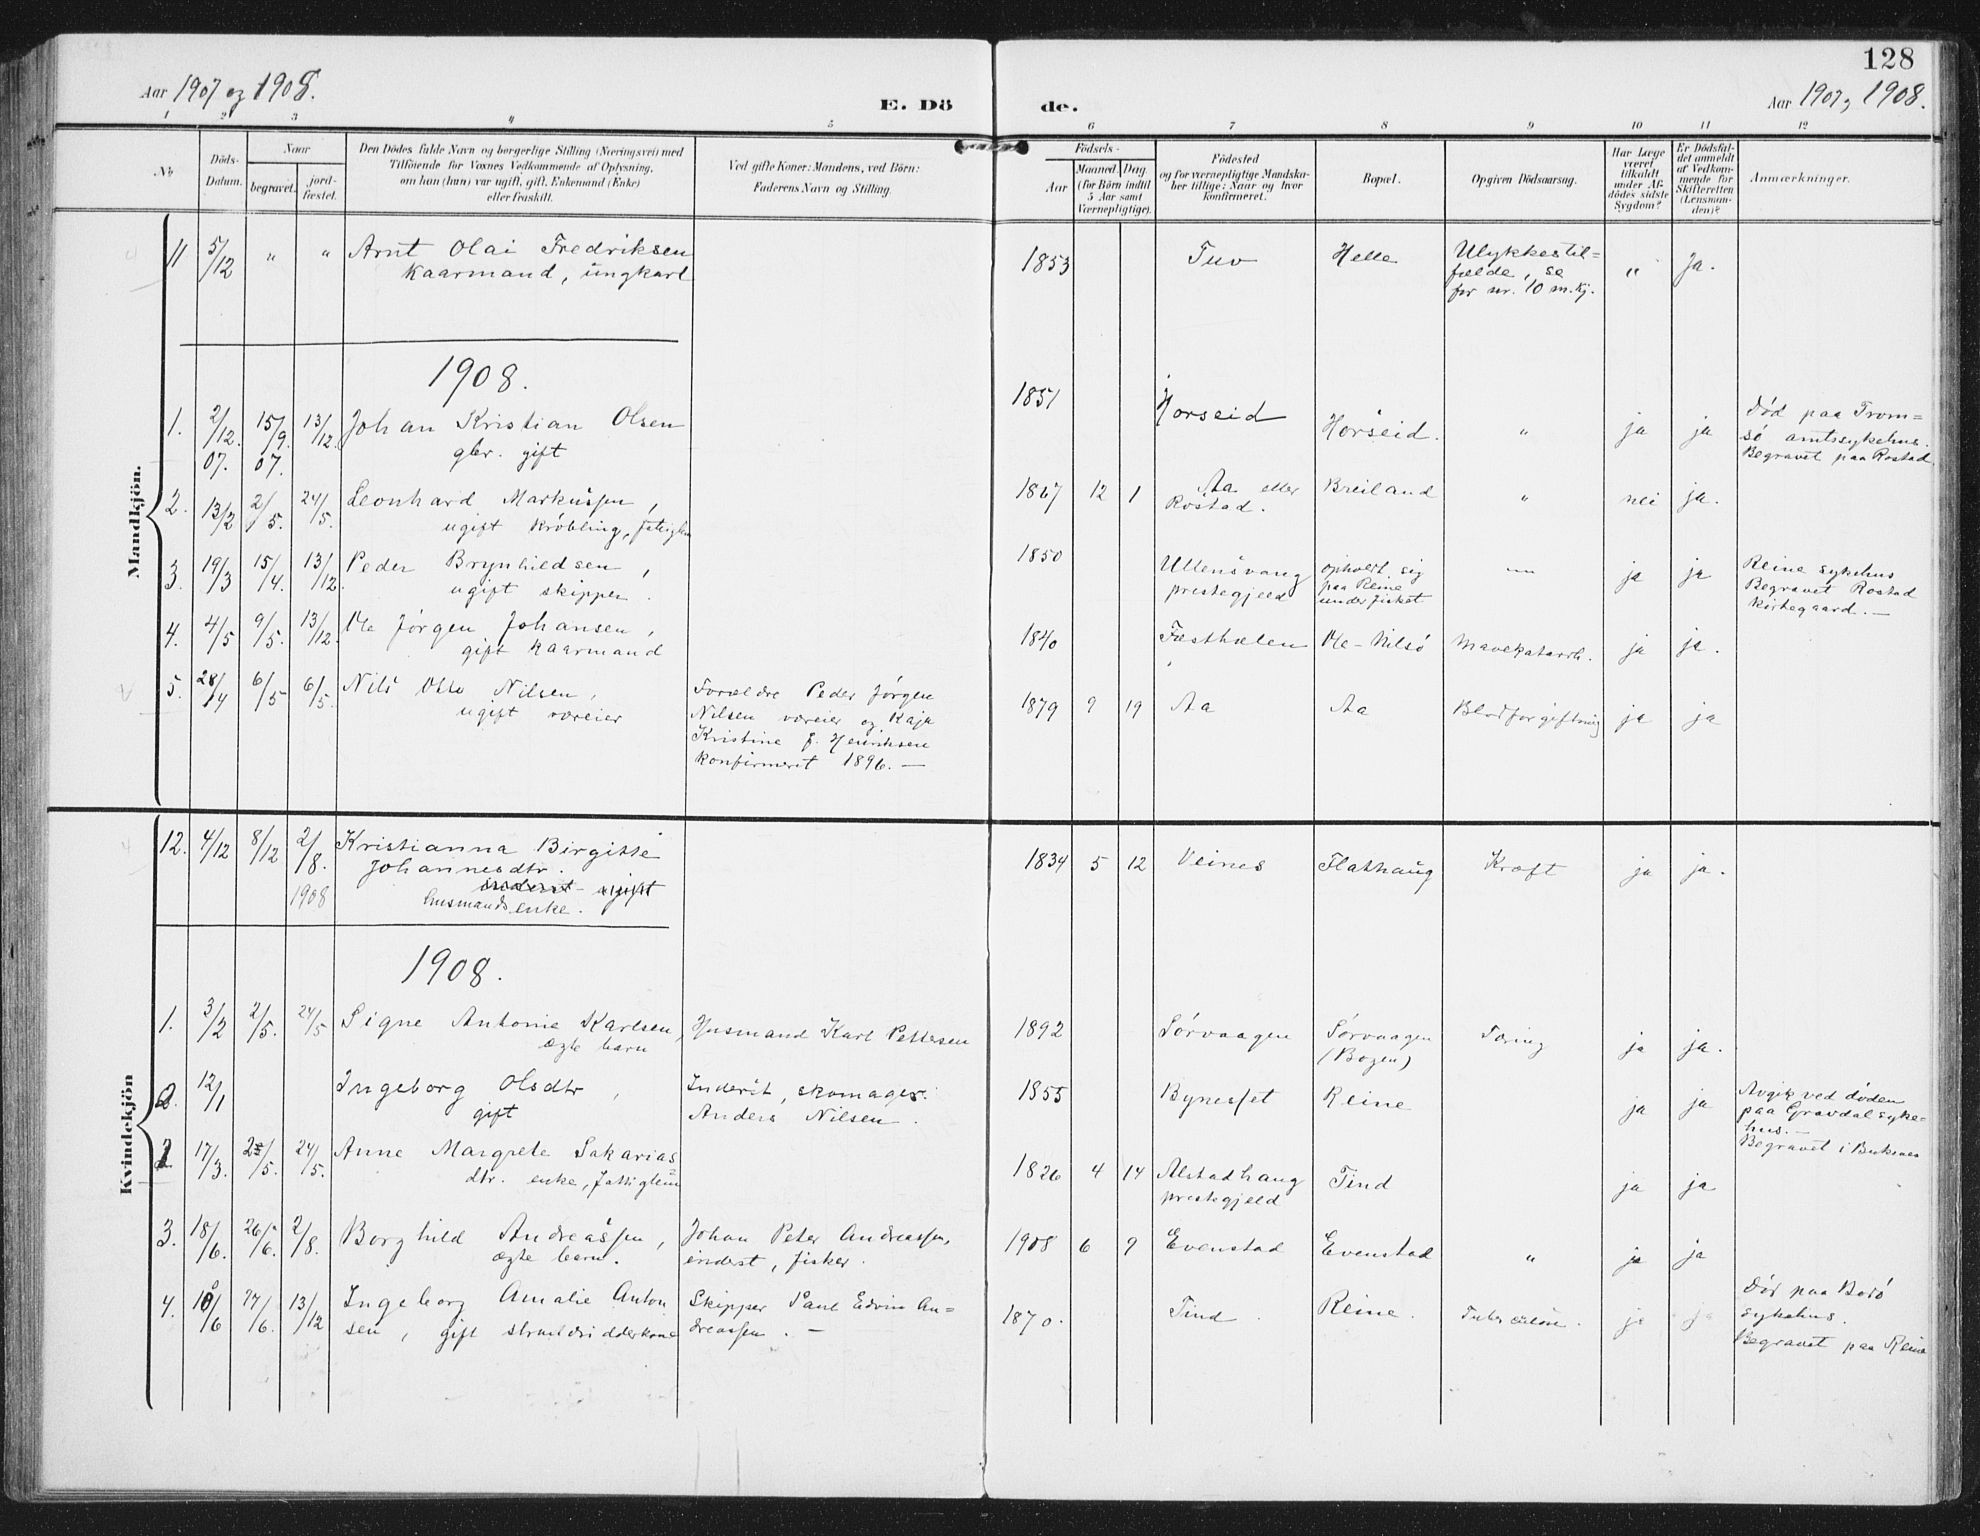 128
Aar 1907 og 1908.
E. Dö
de.
Aar 1907 og 1908.
1 2 3 4 5 6 7 8 9 10 11 12
No
Döds-
Datum.
Naar
begravet.
jord-
fæstet.
Den Dödes fulde Navn og borgerlige Stilling (Næringsvei) med
Tilföiende for Voxnes Vedkommende af Oplysning,
om han (hun) var ugift, gift, Enkemand (Enke)
eller fraskilt.
Ved gifte Koner: Mandens, ved Börn:
Faderens Navn og Stilling.
Födsels-
Aar
Maaned. Dag.
(for Börn indtil
5 Aar samt
Værnepligtige).
Födested
og for værnepligtige Mandska-
ber tillige: Naar og hvor
konfirmeret.
Bopæl.
Opgiven Dödsaarsag.
Har Læge
været
tilkaldt
under Af-
dödes sidste
Sygdom?
Er Dödsfal-
det anmeldt
af Vedkom-
mende for
Skifteretten
(Lensman-
den)?
Anmærkninger.
Mandkjön.
11 5/12 " " Arnt Olai Fredriksen
kaarmand, ungkarl
1853 Tuv Helle Ulykkestil=
fælde, se
for nr. 10 m.kj.
" Ja.
1908.
1. 2/12. 07. 15/9. 07. 13/12. Johan Kristian Olsen
gbr. gift
1851 Horseid Horseid. " ja ja
Død paa Trom=
sø amtssykehus.
Begravet paa Rostad
2. 13/2 2/5. 24/5. Leonhard Markussen,
ugift krøbling, fattiglem
1867 12 1 Aa eller
Rostad.
Breiland " nei ja.
3. 19/3 15/4. 13/12. Peder Brynhildsen,
ugift skipper.
1850 Ullensvang
prestegjeld
ophold. sig
paa Reine
under fisket
" ja ja
Reine sykehus
Begravet Rostad
kirkegaard. —
4. 4/5 9/5. 13/12. Ole Jørgen Johansen,
gift kaarmand
1840 Festhælen Ole-Nilsø Mavekatarrh. ja ja.
5. 28/4 6/5 6/5. Nils Otto Nilsen,
ugift væreier
Forældre Peder Jørgen
Nilsen væreier og Kaja
Kristine f. Henriksen
konfirmeret 1896. —
1879 9 19 Aa Aa Blodforgiftning ja ja
Kvindekjön
12. 4/12 8/12 2/8. 1908 Kristianna Birgitte
Johannesdtr.
inderst ugift
husmands enke.
1834 5 12 Veines Flathaug Kræft ja ja.
1908.
1. 3/2 2/5. 24/5 Signe Antonie Karlsen,
ægte barn
Husmand Karl Pettersen
1892 Sørvaagen Sørvaagen
(Bogen)
Tæring ja ja.
2. 12/1 Ingeborg Olsdtr,
gift
Inderst, skomager
Anders Nilsen.
1855 Bynesset Reine ja ja
Avgik ved døden
paa Gravdal syke-
hus. —
Begravet i Buksnes
2 17/3. 2/5. 24/5. Anne Margrete Sakarias=
dtr. enke, fattiglem
1826 4 14 Alstadhaug
prestegjeld
Tind ja ja
3. 18/6. 26/6. 2/8. Borghild Andreassen,
ægte barn.
Johan Peter Andreassen,
inderst, fisker.
1908 6 9 Evenstad Evenstad " ja ja
4. 10/6 17/6. 13/12 Ingeborg Amalie Anton
sen, gift
Skipper Paul Edvin An=
dreassen. —
1870. Tind Reine. Tuberculose. ja ja
Død paa Bodø
sykehus.
Begravet paa Reine